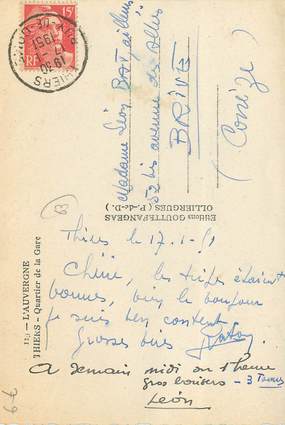 15F
RF
THIERS
18 30
17 - 1
1951
PUY-DE-DÔME
Madame Léon
52 bis avenue des
BRIVE
(Corrèze)
Editions GOUTTEFANGEAS
OLLIERGUES (P.-de-D.)
L'AUVERGNE
THIERS - Quartier de la Gare
63
Thiers le 17-1-51
Chérie, les tripes étaient
bonnes, bien le bonjour
je suis très content
Grosses bises
A demain midi ou 1 heure
gros baisers - 3
Léon